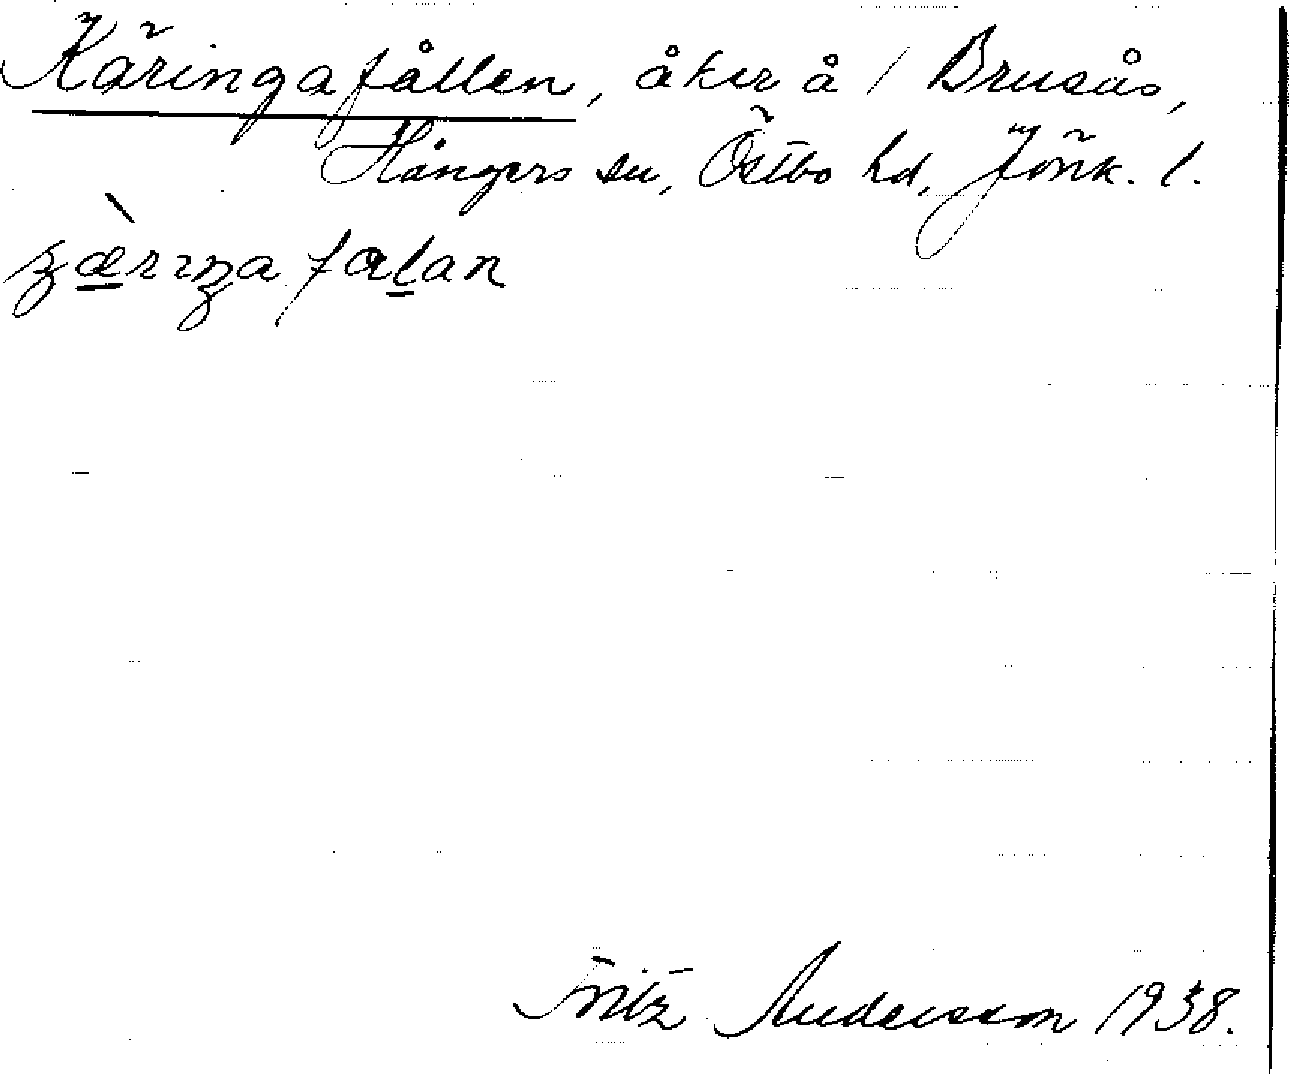 Käringafållen, åker å / Brusås,
Hångers sn, Östbo hd, Jönk. l.
Fritz Andersson 1938.